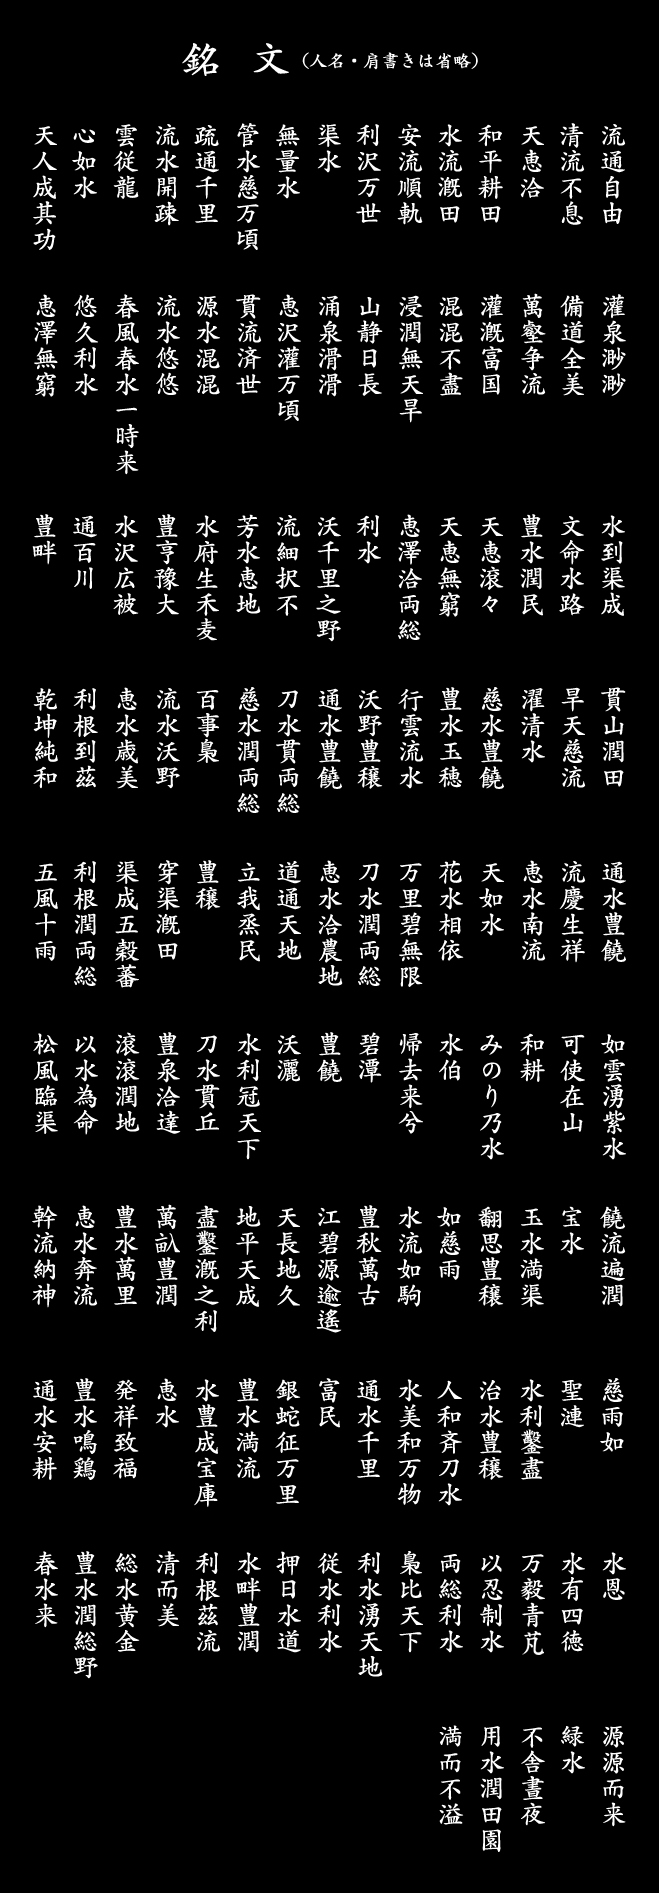 銘 文（人名・肩書きは省略）
流通自由
清流不息
天恵洽
和平耕田
水流漑田
安流順軌
利沢万世
渠水
無量水
管水慈万頃
疏通千里
流水開疎
雲従龍
心如水
天人成其功
灌泉渺渺
備道全美
萬壑争流
灌漑富国
混混不盡
浸潤無天旱
山静日長
涌泉滑滑
恵沢灌万頃
貫流済世
源水混混
流水悠悠
春風春水一時来
悠久利水
恵澤無窮
水到渠成
文命水路
豊水潤民
天恵滾々
天恵無窮
恵澤洽両総
利水
沃千里之野
流細択不
芳水恵地
水府生禾麦
豊亨豫大
水沢広被
通百川
豊畔
貫山潤田
旱天慈流
濯清水
慈水豊饒
豊水玉穂
行雲流水
沃野豊穣
通水豊饒
刀水貫両総
慈水潤両総
百事梟
流水沃野
恵水歳美
利根到茲
乾坤純和
通水豊饒
流慶生祥
恵水南流
天如水
花水相依
万里碧無限
刀水潤両総
恵水洽農地
道通天地
立我烝民
豊穣
穿渠漑田
渠成五穀蕃
利根潤両総
五風十雨
如雲湧紫水
可使在山
和耕
みのり乃水
水伯
帰去来兮
碧潭
豊饒
沃灑
水利冠天下
刀水貫丘
豊泉洽達
滾滾潤地
以水為命
松風臨渠
饒流遍潤
宝水
玉水満渠
翻思豊穣
如慈雨
水流如駒
豊秋萬古
江碧源逾遙
天長地久
地平天成
盡鑿漑之利
萬畝豊潤
豊水萬里
恵水奔流
幹流納神
慈雨如
聖漣
水利鑿盡
治水豊穣
人和斉刀水
水美和万物
通水千里
富民
銀蛇征万里
豊水満流
水豊成宝庫
恵水
発祥致福
豊水鳴鶏
通水安耕
水恩
水有四徳
万毅青芃
以忍制水
両総利水
梟比天下
利水湧天地
従水利水
押日水道
水畔豊潤
利根茲流
清而美
総水黄金
豊水潤総野
春水来
源源而来
緑水
不舎晝夜
用水潤田園
満而不溢